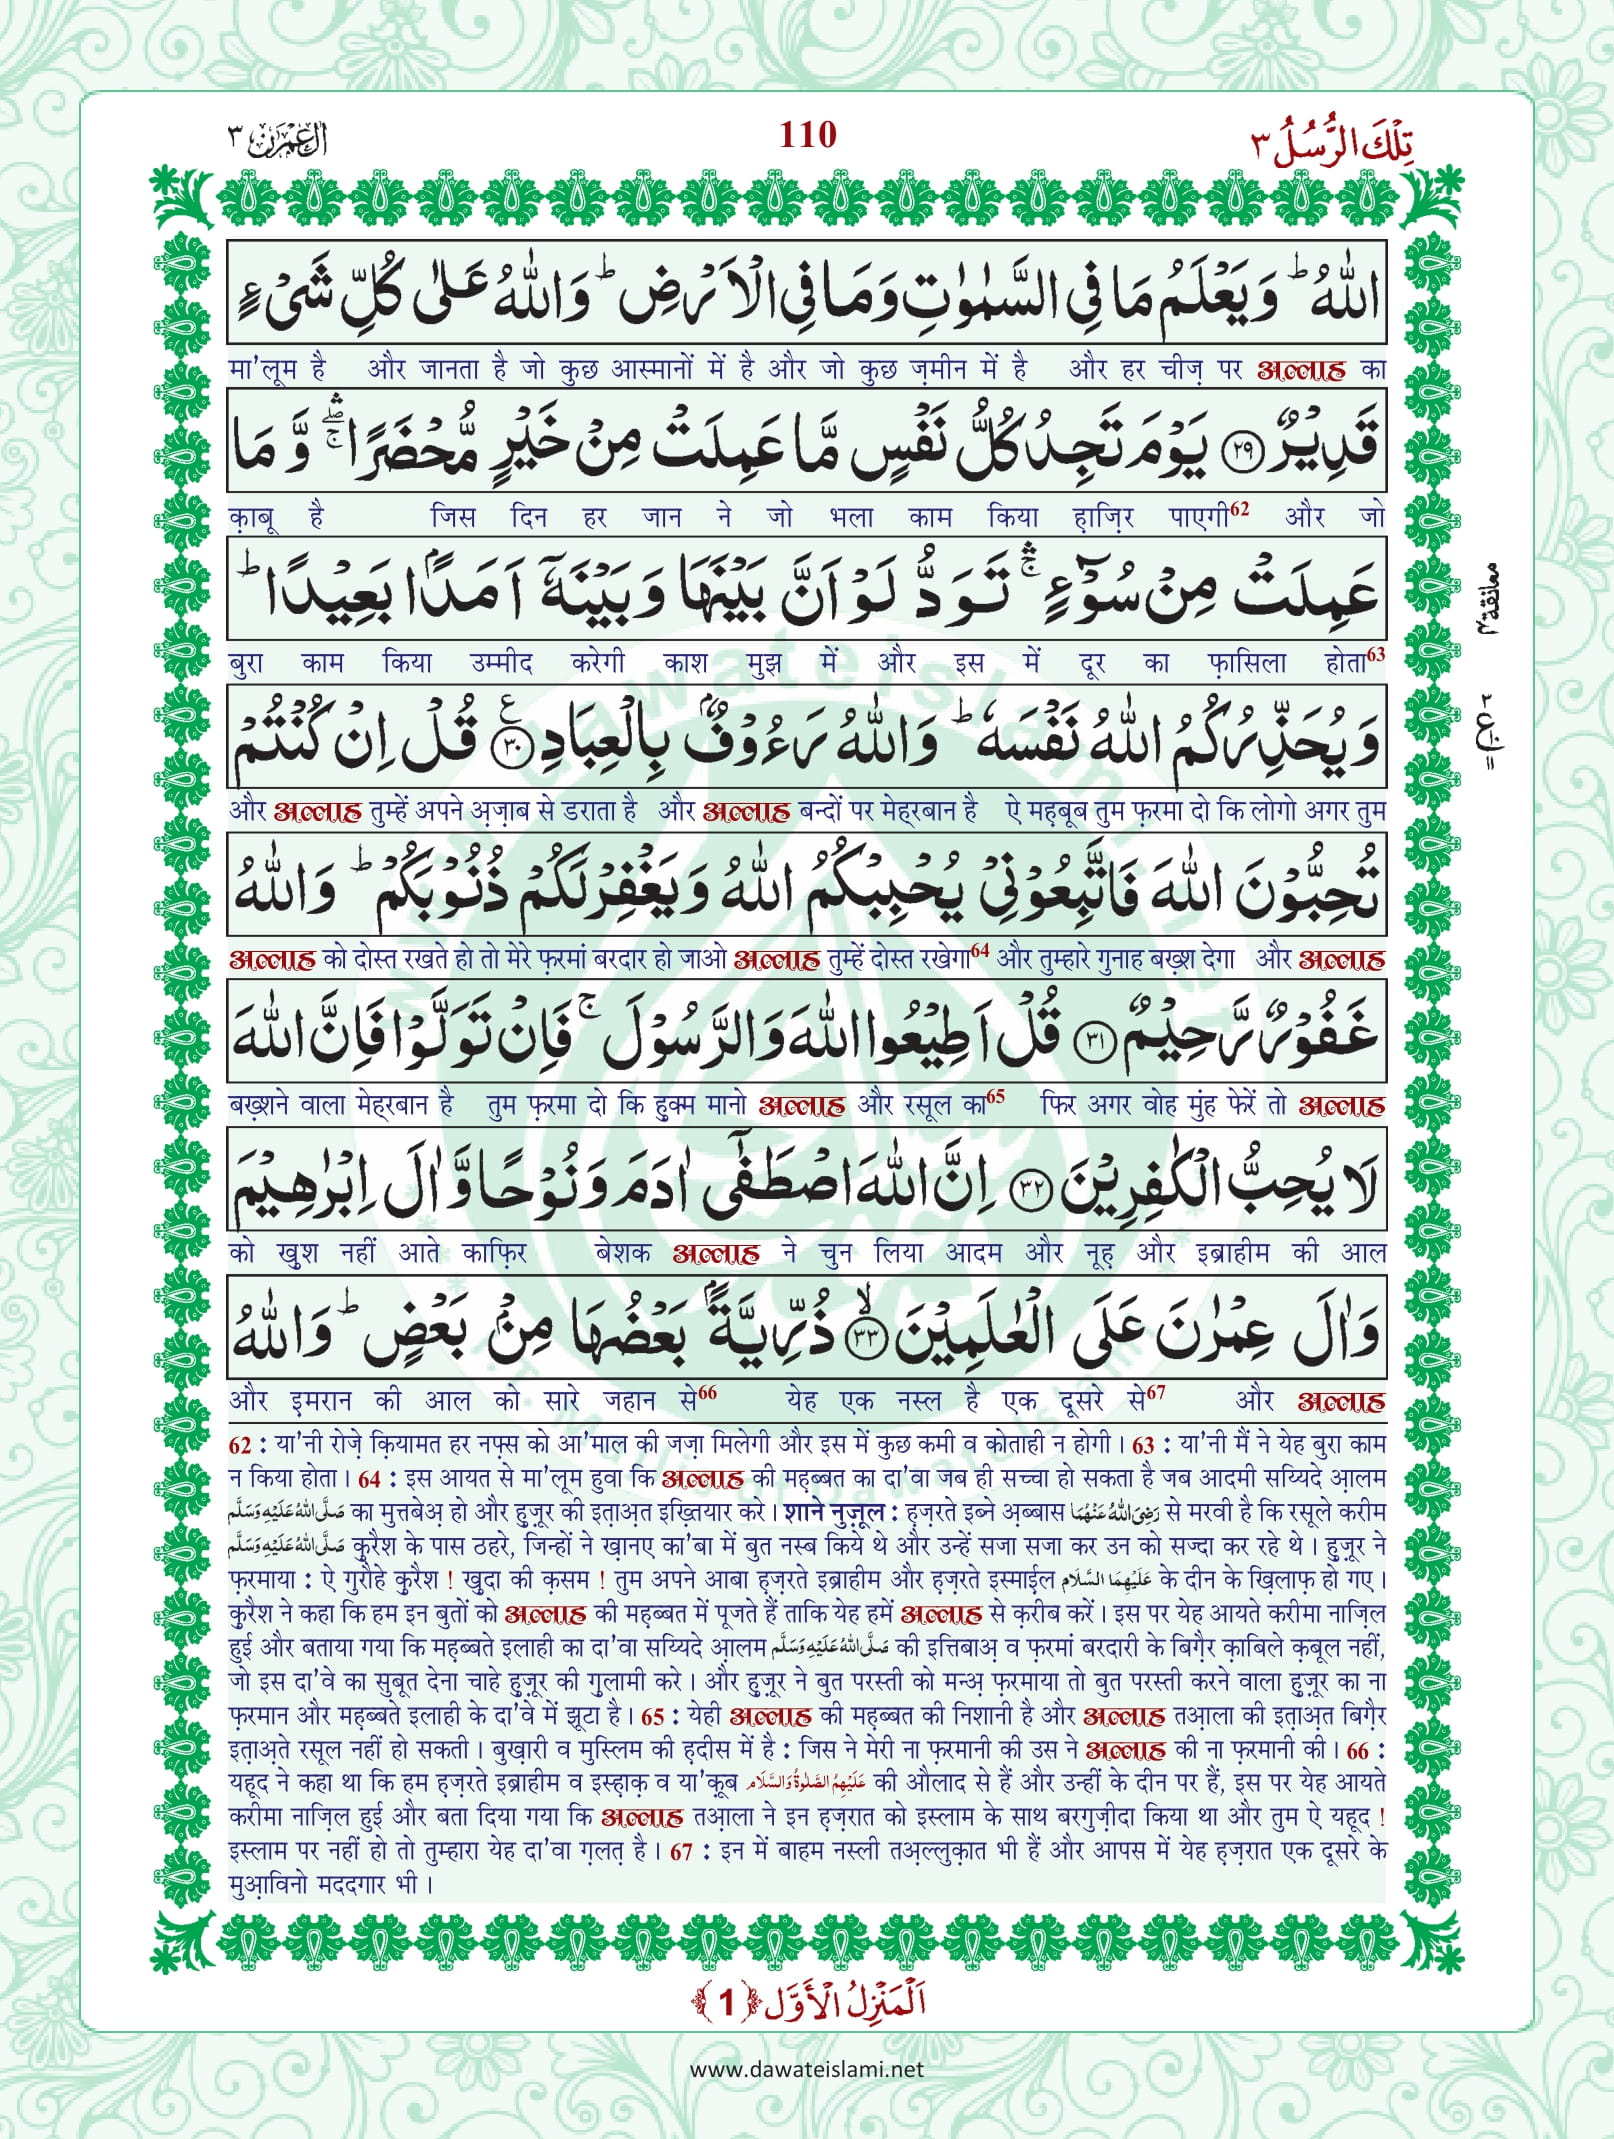 اٰل عِمْرٰن ٣ 110 تِلْكَ الرُّسُلُ ٣
اللّٰهُ ؕ وَ یَعْلَمُ مَا فِی السَّمٰوٰتِ وَ مَا فِی الْاَرْضِ ؕ وَ اللّٰهُ عَلٰى كُلِّ شَیْءٍ
मा'लूम है और जानता है जो कुछ आस्मानों में है और जो कुछ ज़मीन में है और हर चीज़ पर अल्लाह का
قَدِیْرٌ ﴿۲۹﴾ یَوْمَ تَجِدُ كُلُّ نَفْسٍ مَّا عَمِلَتْ مِنْ خَیْرٍ مُّحْضَرًا ۛۖۚ وَّ مَا
क़ाबू है जिस दिन हर जान ने जो भला काम किया हाज़िर पाएगी62 और जो
عَمِلَتْ مِنْ سُوْٓءٍ ۛۚ تَوَدُّ لَوْ اَنَّ بَیْنَهَا وَ بَیْنَهٗۤ اَمَدًۢا بَعِیْدًا ؕ
معانقة ٢
बुरा काम किया उम्मीद करेगी काश मुझ में और इस में दूर का फ़ासिला होता63
وَ یُحَذِّرُكُمُ اللّٰهُ نَفْسَهٗ ؕ وَ اللّٰهُ رَءُوْفٌۢ بِالْعِبَادِ ﴿۳۰﴾ ع قُلْ اِنْ كُنْتُمْ
और अल्लाह तुम्हें अपने अ़ज़ाब से डराता है और अल्लाह बन्दों पर मेह्रबान है ऐ मह़बूब तुम फ़रमा दो कि लोगो अगर तुम
تُحِبُّوْنَ اللّٰهَ فَاتَّبِعُوْنِیْ یُحْبِبْكُمُ اللّٰهُ وَ یَغْفِرْ لَكُمْ ذُنُوْبَكُمْ ؕ وَ اللّٰهُ
अल्लाह को दोस्त रखते हो तो मेरे फ़रमां बरदार हो जाओ अल्लाह तुम्हें दोस्त रखेगा64 और तुम्हारे गुनाह बख़्श देगा और अल्लाह
غَفُوْرٌ رَّحِیْمٌ ﴿۳۱﴾ قُلْ اَطِیْعُوا اللّٰهَ وَ الرَّسُوْلَ ۚ فَاِنْ تَوَلَّوْا فَاِنَّ اللّٰهَ
बख़्शने वाला मेह्रबान है तुम फ़रमा दो कि हुक्म मानो अल्लाह और रसूल का65 फिर अगर वोह मुंह फेरें तो अल्लाह
لَا یُحِبُّ الْكٰفِرِیْنَ ﴿۳۲﴾ اِنَّ اللّٰهَ اصْطَفٰۤى اٰدَمَ وَ نُوْحًا وَّ اٰلَ اِبْرٰهِیْمَ
को ख़ुश नहीं आते काफ़िर बेशक अल्लाह ने चुन लिया आदम और नूह़ और इब्राहीम की आल
وَ اٰلَ عِمْرٰنَ عَلَى الْعٰلَمِیْنَ ﴿۳۳﴾ۙ ذُرِّیَّةًۢ بَعْضُهَا مِنْۢ بَعْضٍ ؕ وَ اللّٰهُ
और इमरान की आल को सारे जहान से66 येह एक नस्ल है एक दूसरे से67 और अल्लाह
62 : या'नी रोज़े क़ियामत हर नफ़्स को आ'माल की जज़ा मिलेगी और इस में कुछ कमी व कोताही न होगी। 63 : या'नी मैं ने येह बुरा काम
न किया होता। 64 : इस आयत से मा'लूम हुवा कि अल्लाह की मह़ब्बत का दा'वा जब ही सच्चा हो सकता है जब आदमी सय्यिदे आ़लम
صَلَّى اللّٰهُ عَلَيْهِ وَسَلَّم का मुत्तबेअ़ हो और हु़ज़ूर की इत़ाअ़त इख़्तियार करे। शाने नुज़ूल : ह़ज़रते इब्ने अ़ब्बास رَضِىَ اللّٰهُ عَنْهُمَا से मरवी है कि रसूले करीम
صَلَّى اللّٰهُ عَلَيْهِ وَسَلَّم क़ुरैश के पास ठहरे, जिन्हों ने ख़ानए का'बा में बुत नस्ब किये थे और उन्हें सजा सजा कर उन को सज्दा कर रहे थे। हु़ज़ूर ने
फ़रमाया : ऐ गुरौहे क़ुरैश ! ख़ुदा की क़सम ! तुम अपने आबा ह़ज़रते इब्राहीम और ह़ज़रते इस्माईल عَلَيْهِمَا السَّلَام के दीन के ख़िलाफ़ हो गए।
क़ुरैश ने कहा कि हम इन बुतों को अल्लाह की मह़ब्बत में पूजते हैं ताकि येह हमें अल्लाह से क़रीब करें। इस पर येह आयते करीमा नाज़िल
हुई और बताया गया कि मह़ब्बते इलाही का दा'वा सय्यिदे आ़लम صَلَّى اللّٰهُ عَلَيْهِ وَسَلَّم की इत्तिबाअ़ व फ़रमां बरदारी के बिग़ैर क़ाबिले क़बूल नहीं,
जो इस दा'वे का सुबूत देना चाहे हु़ज़ूर की ग़ुलामी करे। और हु़ज़ूर ने बुत परस्ती को मन्अ़ फ़रमाया तो बुत परस्ती करने वाला हु़ज़ूर का ना
फ़रमान और मह़ब्बते इलाही के दा'वे में झूटा है। 65 : येही अल्लाह की मह़ब्बत की निशानी है और अल्लाह तआ़ला की इत़ाअ़त बिग़ैर
इत़ाअ़ते रसूल नहीं हो सकती। बुख़ारी व मुस्लिम की ह़दीस में है : जिस ने मेरी ना फ़रमानी की उस ने अल्लाह की ना फ़रमानी की। 66 :
यहूद ने कहा था कि हम ह़ज़रते इब्राहीम व इस्ह़ाक़ व या'क़ूब عَلَيْهِمُ الصَّلٰوةُ وَالسَّلَام की औलाद से हैं और उन्हीं के दीन पर हैं, इस पर येह आयते
करीमा नाज़िल हुई और बता दिया गया कि अल्लाह तआ़ला ने इन ह़ज़रात को इस्लाम के साथ बरगुज़ीदा किया था और तुम ऐ यहूद !
इस्लाम पर नहीं हो तो तुम्हारा येह दा'वा ग़लत़ है। 67 : इन में बाहम नस्ली तअ़ल्लुक़ात भी हैं और आपस में येह ह़ज़रात एक दूसरे के
मुआ़विनो मददगार भी।
اَلْمَنْزِلُ الْاَوَّل ﴿1﴾
www.dawateislami.net